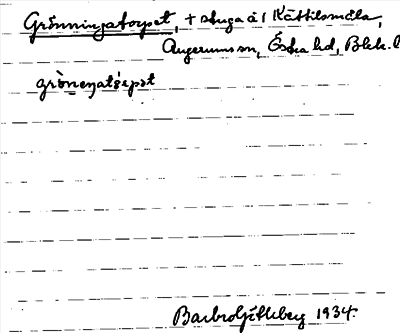 Grönningatorpet, + stuga å 1 Kättilsmåla,
Augerums sn, Östra hd, Blek. l
grönenatǫrpət
Barbro Söderberg 1934.